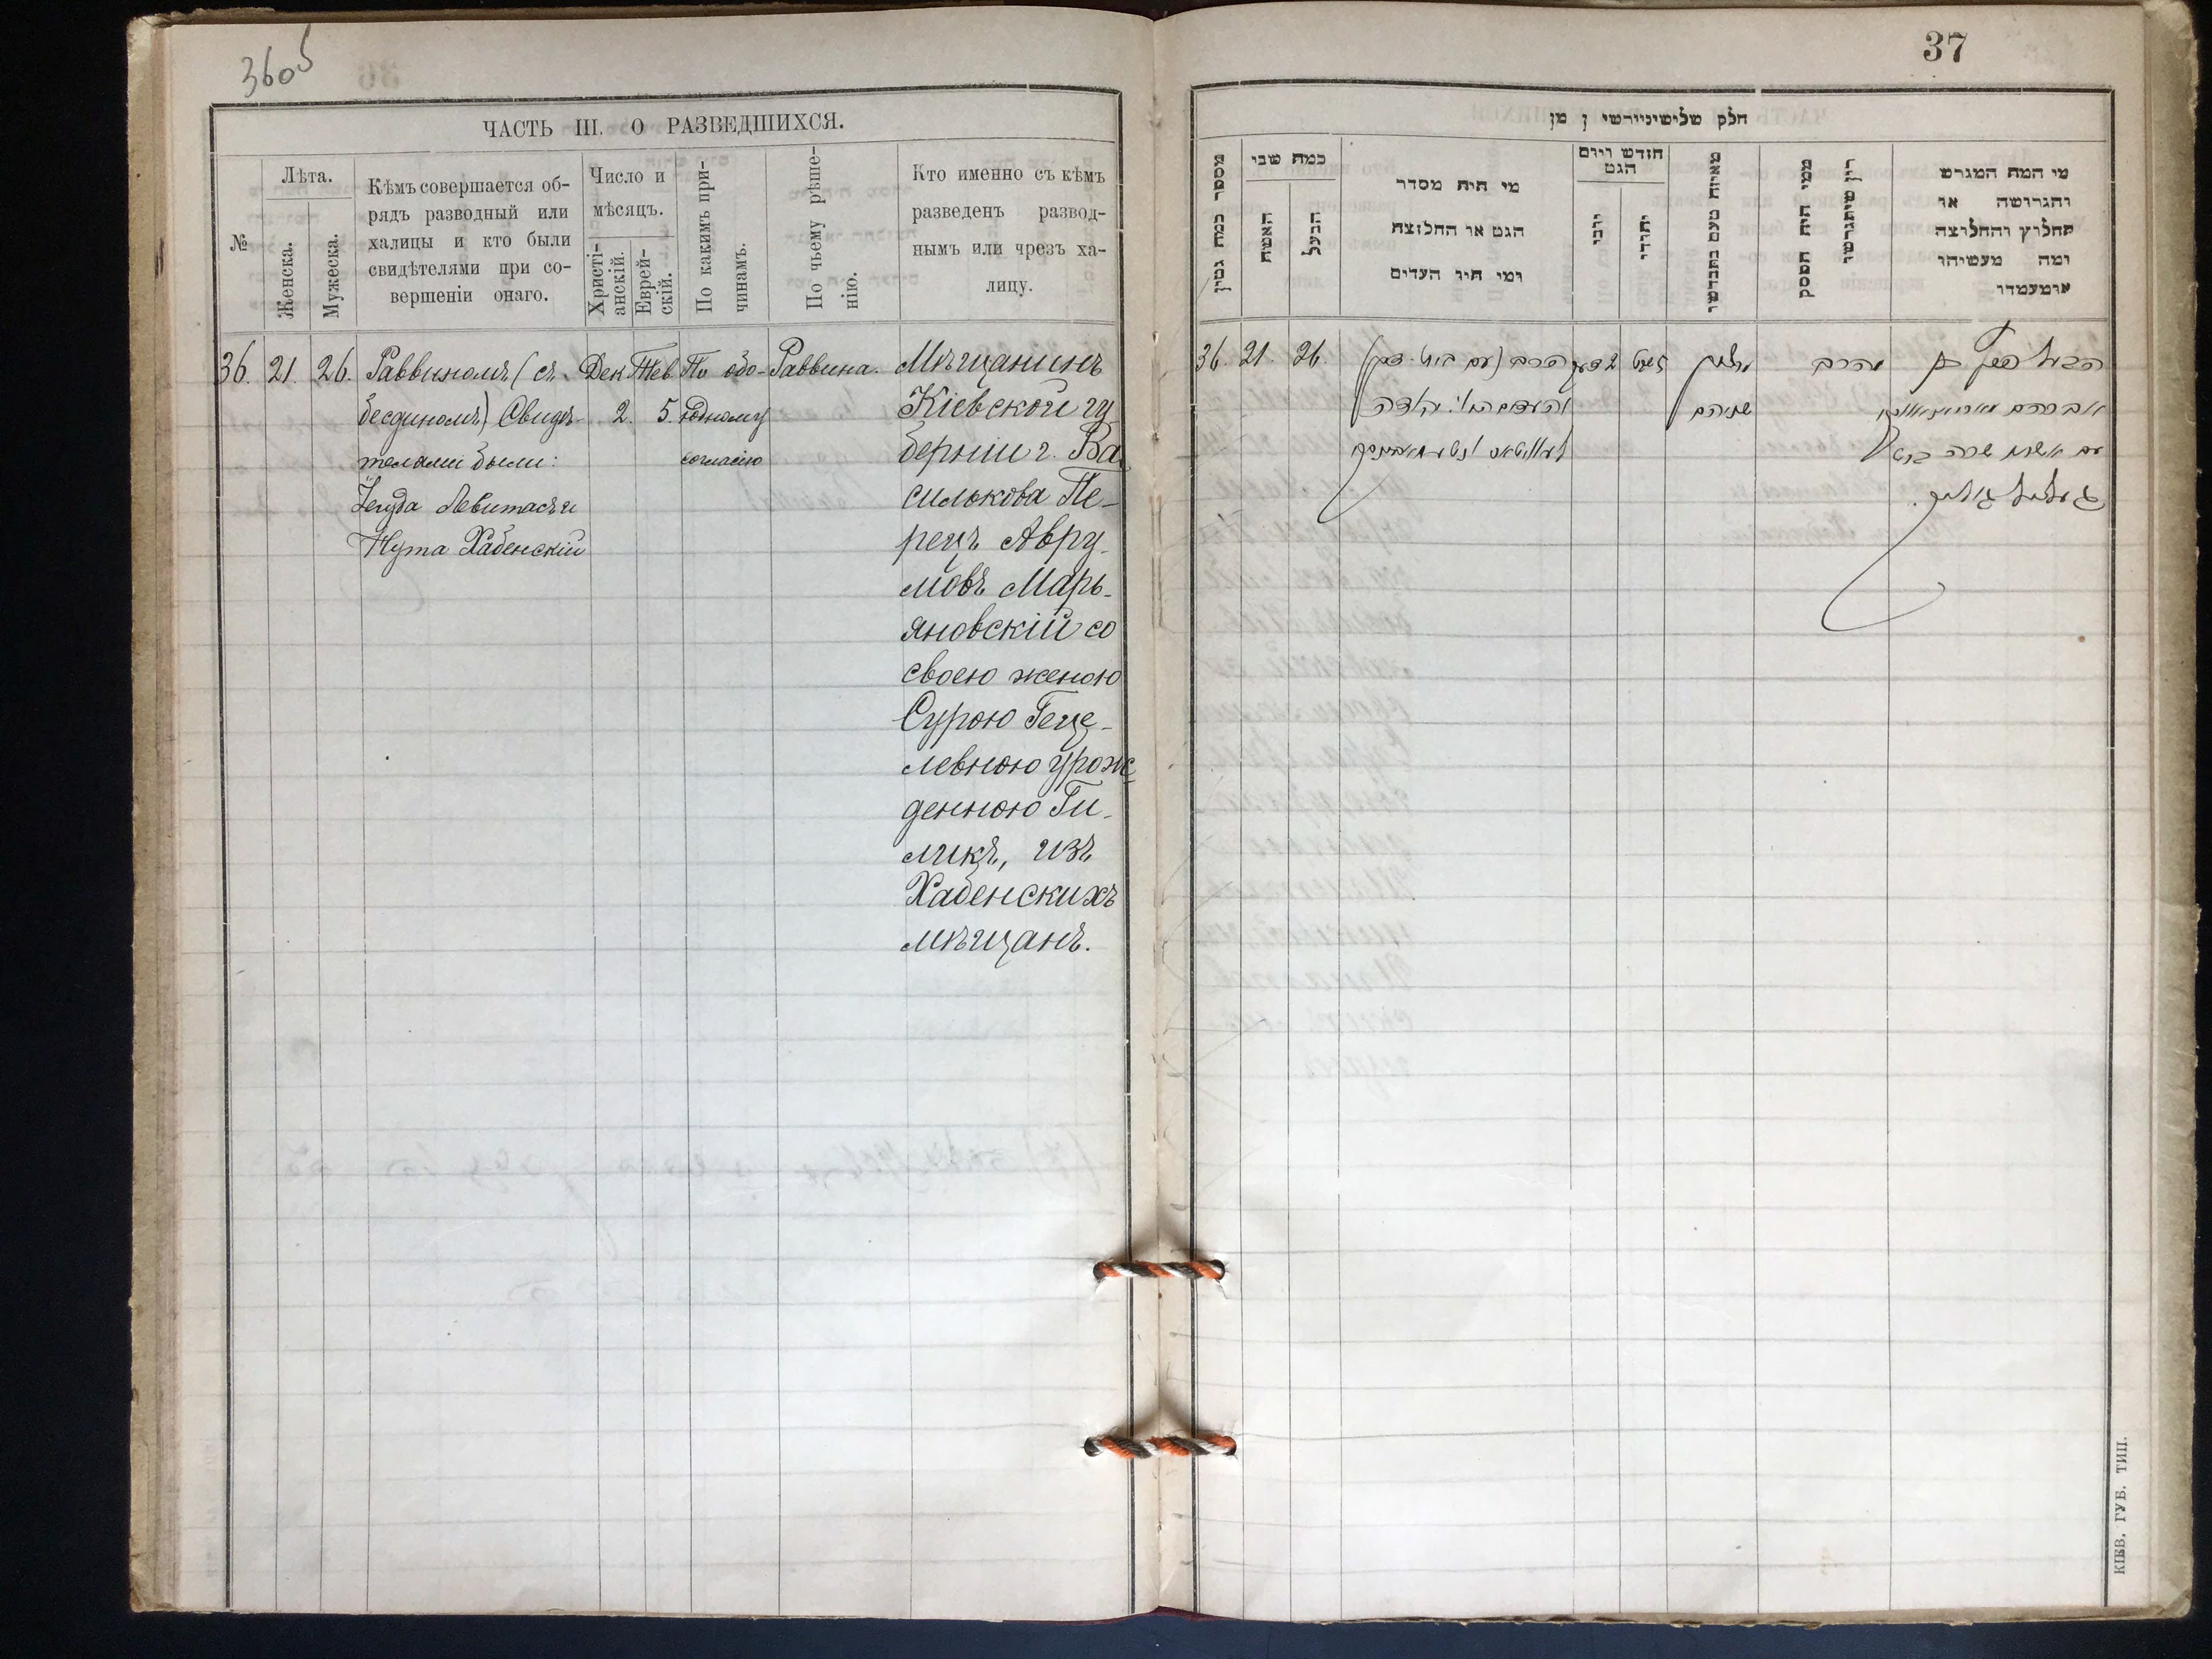 360б
ЧАСТЬ III. О РАЗВЕДШИХСЯ.
№
Лѣта.
Женска.
Мужеска.
Кѣмъ совершается об-
рядъ разводный или
халицы и кто были
свидѣтелями при со-
вершеніи онаго.
Число и
мѣсяцъ.
Христі-
анскій.
Еврей-
скій.
По какимъ при-
чинамъ.
По чьему рѣше-
нію.
Кто именно съ кѣмъ
разведенъ развод-
нымъ или чрезъ ха-
лицу.
36. 21. 26.
Раввиномъ (съ
бесдиномъ) Свидѣ-
телями были:
Іегуда Левитасъ и
Нута Хабенскій
Дек
2.
Тев
5.
По обо-
юдному
согласію
Раввина.
Мѣщанинъ
Кіевской гу
берніи г. Ва
силькова Пе-
рецъ Авру-
мовъ Марь-
яновскій со
своею женою
Сурою Геце-
левною урож
денною Ги-
ликъ, изъ
Хабенскихъ
мѣщанъ.
37
מספר כמה גטין
כמה שני
האשה
הבעל
מי היה מסדר
הגט או החלוצה
ומי היו העדים
חודש ויום
הגט
יהודי
מאיזה טעם נתגרשו
ממי היה הפסק
דין שיתגרשו
מי המה המגרש
והגרושה או
החלוץ והחלוצה
ומה מעשיהו
ומעמדו
36. 21. 26.
שניהם
מהרב
עם אשתו שרה בת
КІЕВ. ГУБ. ТИП.